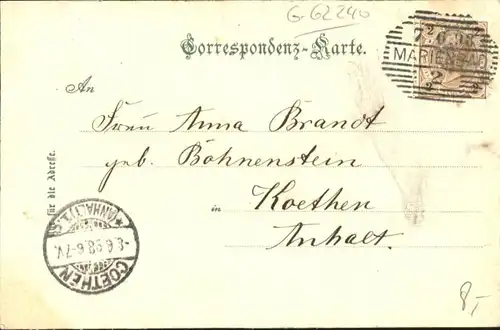 G-62240
Correspondenz-Karte.
MARIENBAD
An
Frau Anna Brandt
geb. Böhnenstein
in Koethen
Anhalt.
für die Adresse.
COETHEN
(ANHALT)
-8.6.98.6-7V.
8,-